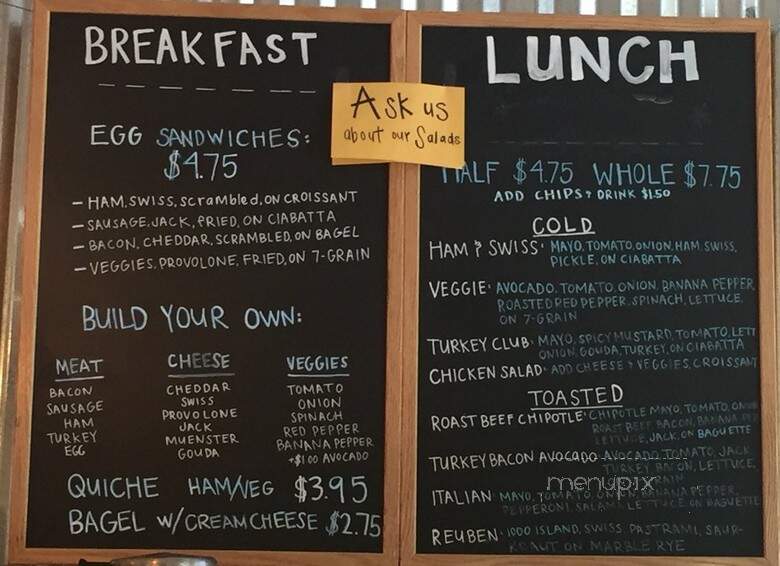 BREAKFAST
EGG SANDWICHES:
$4.75
- HAM, SWISS, scrambled, ON CROISSANT
- SAUSAGE, JACK, FRIED, ON CIABATTA
- BACON, CHEDDAR, SCRAMBLED, ON BAGEL
- VEGGIES, PROVOLONE, FRIED, ON 7-GRAIN
BUILD YOUR OWN:
MEAT
BACON
SAUSAGE
HAM
TURKEY
EGG
CHEESE
CHEDDAR
SWISS
PROVOLONE
JACK
MUENSTER
GOUDA
VEGGIES
TOMATO
ONION
SPINACH
RED PEPPER
BANANA PEPPER
+$1.00 AVOCADO
QUICHE HAM/VEG $3.95
BAGEL W/CREAMCHEESE $2.75
Ask us
about our Salads
LUNCH
HALF $4.75 WHOLE $7.75
ADD CHIPS & DRINK $1.50
COLD
HAM & SWISS: MAYO, TOMATO, ONION, HAM, SWISS,
PICKLE, ON CIABATTA
VEGGIE: AVOCADO, TOMATO, ONION, BANANA PEPPER
ROASTED RED PEPPER, SPINACH, LETTUCE,
ON 7-GRAIN
TURKEY CLUB: MAYO, SPICY MUSTARD, TOMATO, LETT
ONION, GOUDA, TURKEY, ON CIABATTA
CHICKEN SALAD: ADD CHEESE & VEGGIES, CROISSANT
TOASTED
ROAST BEEF CHIPOTLE: CHIPOTLE MAYO, TOMATO, ONION
ROAST BEEF, BACON, BANANA PEP
LETTUCE, JACK, ON BAGUETTE
TURKEY BACON AVOCADO: AVOCADO, TOMATO, JACK
TURKEY, BACON, LETTUCE,
menupix
ITALIAN: MAYO, TOMATO, ONION, BANANA PEPPER,
PEPPERONI, SALAMI, LETTUCE, ON BAGUETTE
REUBEN: 1000 ISLAND, SWISS, PASTRAMI, SAUR-
KRAUT ON MARBLE RYE